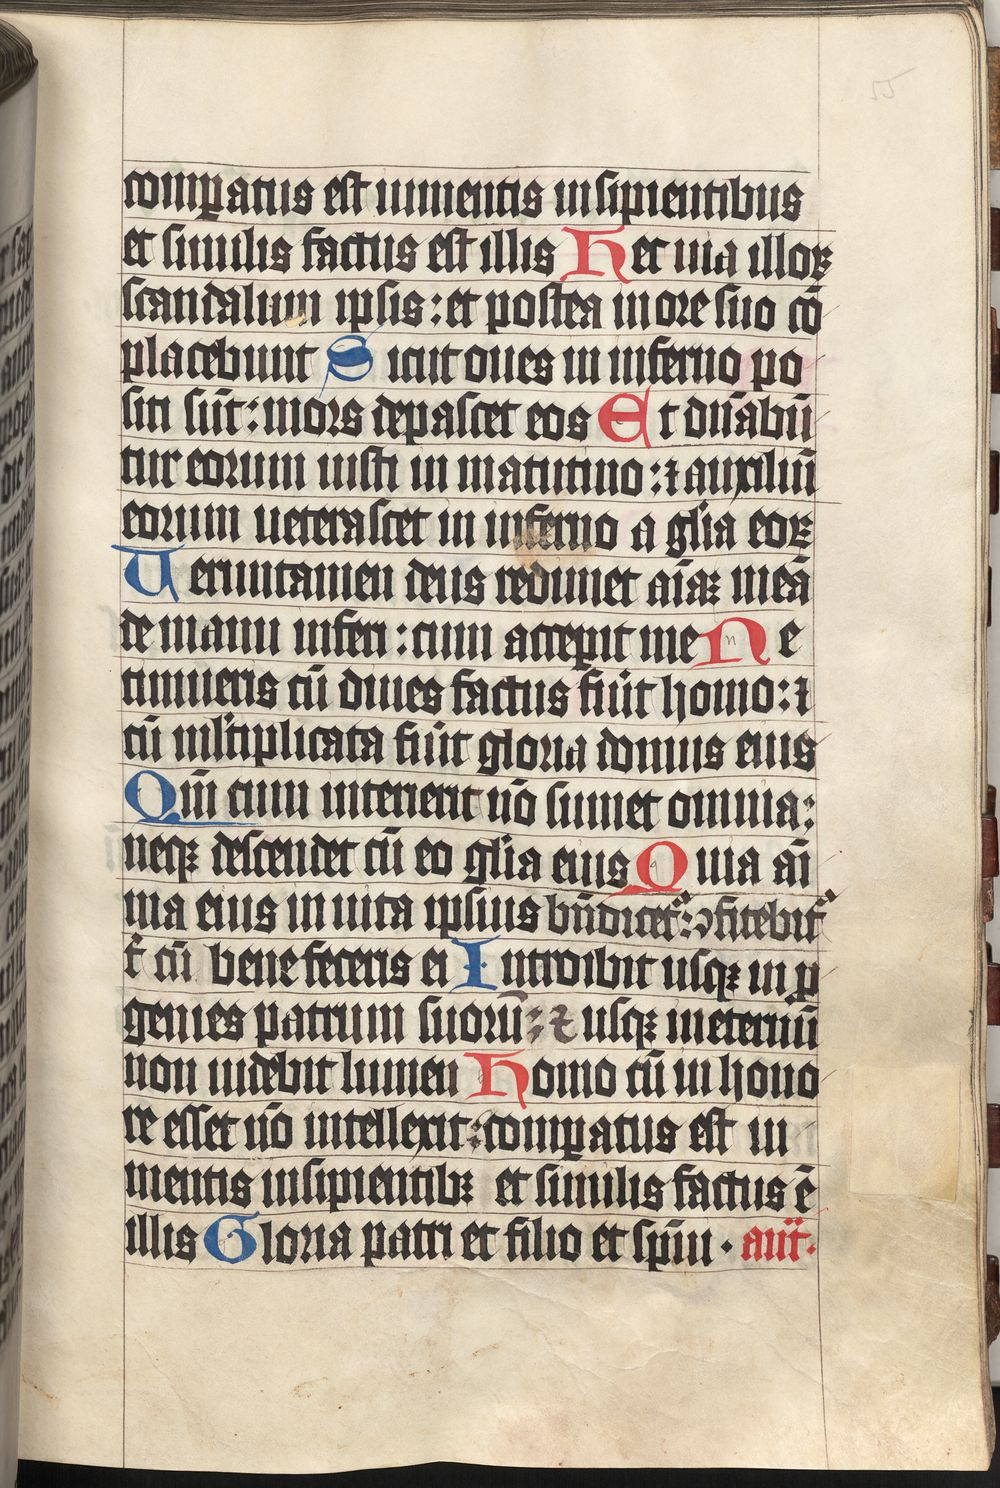 55
comꝑatus est iumentis insipientibus
et similis factus est illis Hec uia illoꝝ
scandalum ipsis: et postea in ore suo cō
placebunt Sicut oues in inferno po
siti sūt: mors depascet eos Et dn̄abū
tur eorum iusti in matutino: ⁊ auxiliū
eorum ueterascet in inferno a gl̄ia eoꝝ
Ueruntamen deus redimet aīaꝫ meā
de manu inferi: cum acceꝑit me Ne
timueris cū diues factus fu̅it homo: ⁊
cū ml̄tiplicata fu̅it gloria domus eius
Qm̄ cum interierit nō sumet omnia:
neqꝫ descendet cū eo gl̄ia eius Quia ai
ma eius in uita ipsius bn̄dicet᷑: ꝯfitebit᷑
t̄ cū bene feceris ei Introibit usqꝫ in ꝓ
genies patrum suorū: ⁊ usqꝫ in eternū
non uidebit lumen Homo cū in hono
re esset nō intellexit: comꝑatus est iu
mentis insipientibꝫ et similis factus ē
illis Gloria patri et filio et spūi · an̄t·